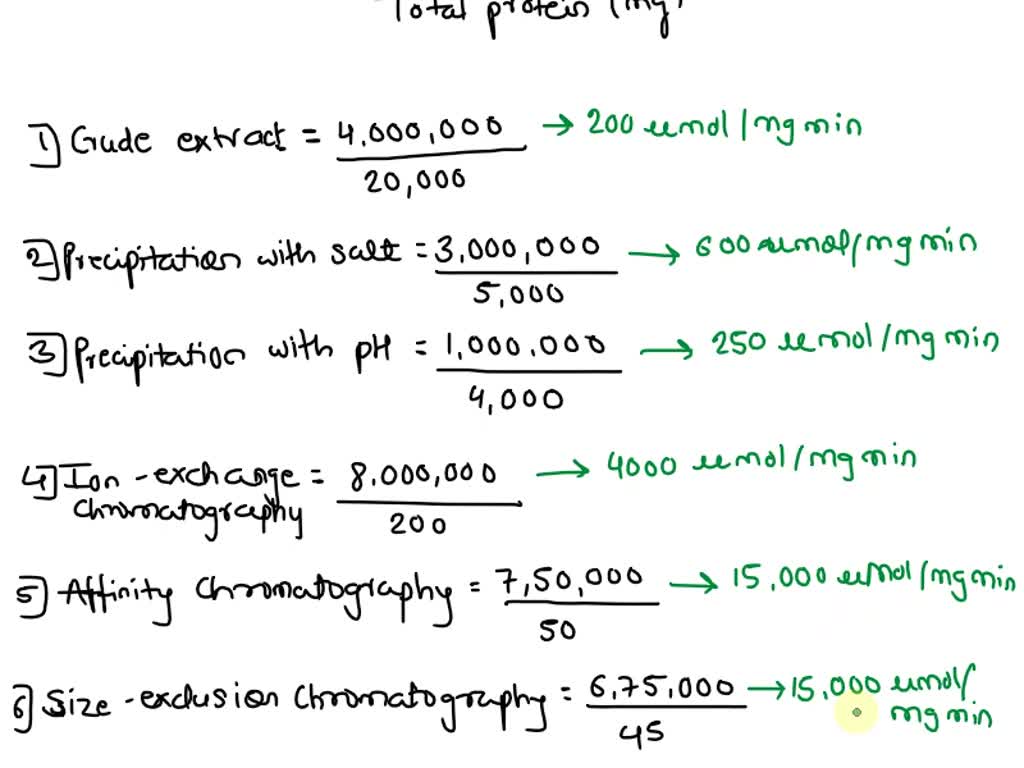 Total protein (mg)
1) Crude extract = 4,000,000 / 20,000 → 200 μmol/mg min
2) Precipitation with salt = 3,000,000 / 5,000 → 600 μmol/mg min
3) Precipitation with pH = 1,000,000 / 4,000 → 250 μmol/mg min
4) Ion-exchange chromatography = 8,000,000 / 200 → 4000 μmol/mg min
5) Affinity chromatography = 7,50,000 / 50 → 15,000 μmol/mg min
6) Size-exclusion chromatography = 6,75,000 / 45 → 15,000 μmol/mg min